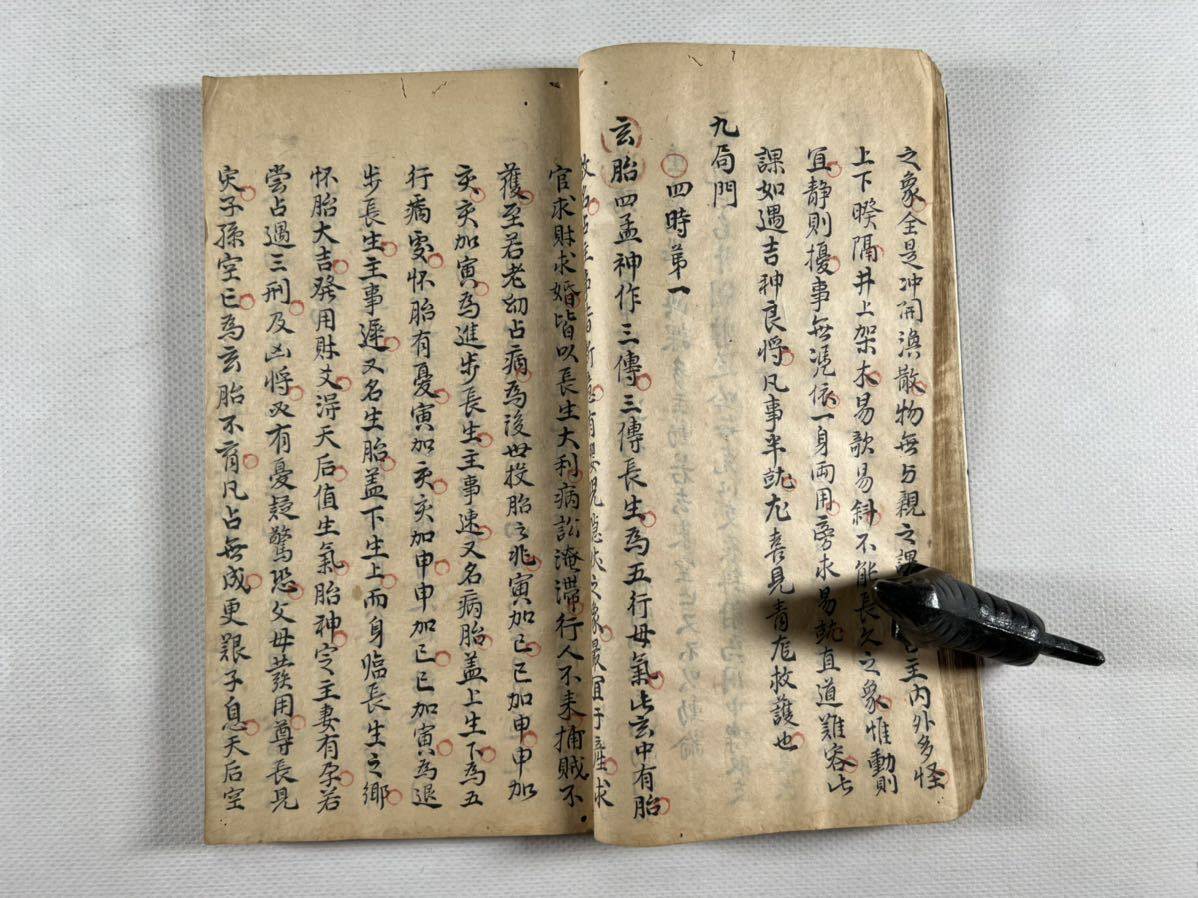 之象全是冲開渙散物無与親之課主內外多怪
上下暌隔井上架木易歌易斜不能長久之象惟動則
宜静則擾事無凭依一身両用旁求易就直道難容此
課如遇吉神良将凡事半就尤喜見青竜救護也
九局門
四時第一
玄胎四孟神作三傳三傳長生為五行母氣此玄中有胎
之象最宜于産求
官求財求婚皆以長生大利病訟淹滞行人不来捕賊不
獲至若老幼占病為後世投胎之兆寅加巳巳加申申加
亥亥加寅為進步長生主事速又名病胎盖上生下為五
行病處懷胎有憂寅加亥亥加申申加巳巳加寅為退
步長生主事遲又名生胎盖下生上而身臨長生之鄉
怀胎大吉發用財爻得天后值生氣胎神定主妻有孕若
嘗占遇三刑及凶将又有憂疑驚恐父母發用尊長見
灾子孫空亡為玄胎不育凡占無成更艱子息天后空